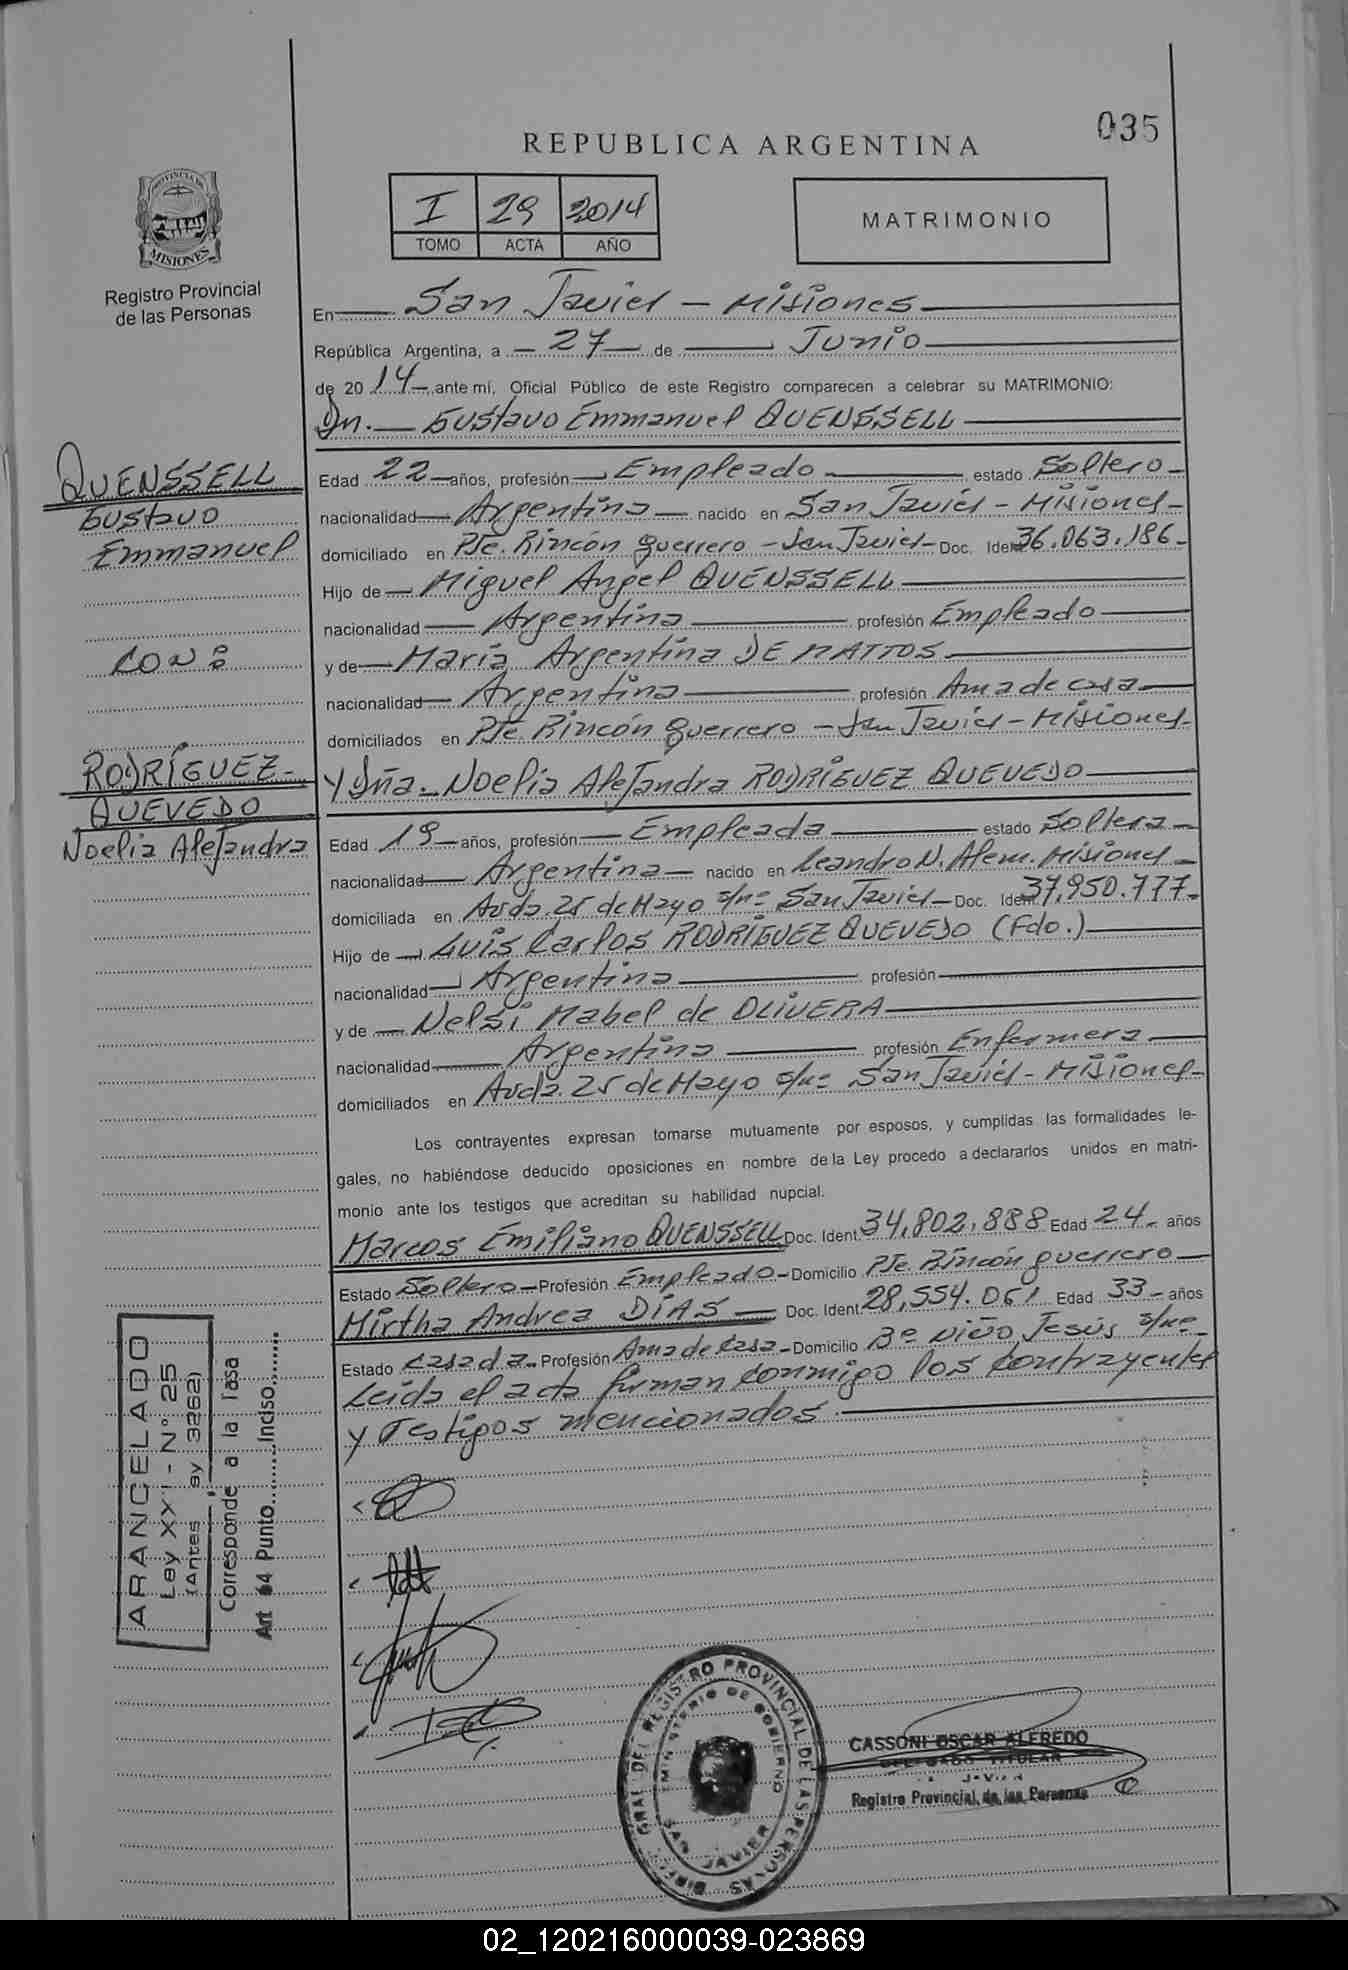 035
REPUBLICA ARGENTINA
I 29 2014
TOMO ACTA AÑO
MATRIMONIO
PROVINCIA DE
MISIONES
Registro Provincial
de las Personas
En San Javier - Misiones
República Argentina, a 27 de Junio
de 2014 ante mí, Oficial Público de este Registro comparecen a celebrar su MATRIMONIO:
Dn. Gustavo Emmanuel QUENSSELL
QUENSSELL
Gustavo
Emmanuel
CON:
RODRÍGUEZ
QUEVEDO
Noelia Alejandra
Edad 22 años, profesión Empleado estado Soltero
nacionalidad Argentina nacido en San Javier - Misiones
domiciliado en Pje. Rincón Guerrero - San Javier Doc. Ident 36.063.186
Hijo de Miguel Angel QUENSSELL
nacionalidad Argentina profesión Empleado
y de María Argentina DE MATTOS
nacionalidad Argentina profesión Ama de casa
domiciliados en Pje. Rincón Guerrero - San Javier - Misiones
Y Dña. Noelia Alejandra RODRÍGUEZ QUEVEDO
Edad 19 años, profesión Empleada estado Soltera
nacionalidad Argentina nacido en Leandro N. Alem. Misiones
domiciliada en Avda. 25 de Mayo s/nº San Javier Doc. Ident 37.950.777
Hijo de Luis Carlos RODRÍGUEZ QUEVEDO (Fdo.)
nacionalidad Argentina profesión
y de Nelsi Mabel de OLIVERA
nacionalidad Argentina profesión Enfermera
domiciliados en Avda. 25 de Mayo s/nº San Javier - Misiones
Los contrayentes expresan tomarse mutuamente por esposos, y cumplidas las formalidades le-
gales, no habiéndose deducido oposiciones en nombre de la Ley procedo a declararlos unidos en matri-
monio ante los testigos que acreditan su habilidad nupcial.
Marcos Emiliano QUENSSELL Doc. Ident. 34.802.888 Edad 24 años
Estado Soltero Profesión Empleado Domicilio Pje. Rincón Guerrero
Mirtha Andrea DÍAS Doc. Ident. 28.554.061 Edad 33 años
Estado casada Profesión Ama de casa Domicilio Bº Niño Jesús s/nº
Leída el acta firman conmigo los contrayentes
y Testigos mencionados.
ARANCELADO
Ley XXI - Nº 25
(Antes Ley 3262)
Corresponde a la Tasa
Art 64 Punto Inciso
DIREC. GRAL. DEL REGISTRO PROVINCIAL DE LAS PERSONAS
MINISTERIO DE GOBIERNO
SAN JAVIER
CASSONI OSCAR ALFREDO
DELEGADO TITULAR
Registro Provincial de las Personas
02_120216000039-023869